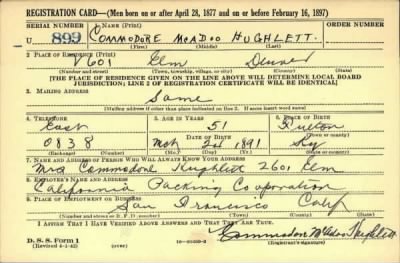 REGISTRATION CARD—(Men born on or after April 28, 1877 and on or before February 16, 1897)
SERIAL NUMBER 1. NAME (Print)
U 899 COMMODORE McADOO HUGHLETT.
(First) (Middle) (Last)
2. PLACE OF RESIDENCE (Print)
2601 Elm Denver
(Number and street) (Town, township, village, or city) (County) (State)
[THE PLACE OF RESIDENCE GIVEN ON THE LINE ABOVE WILL DETERMINE LOCAL BOARD
JURISDICTION; LINE 2 OF REGISTRATION CERTIFICATE WILL BE IDENTICAL]
3. MAILING ADDRESS
Same
(Mailing address if other than place indicated on line 2. If same insert word same)
4. TELEPHONE 5. AGE IN YEARS 6. PLACE OF BIRTH
East 51 Fulton
DATE OF BIRTH (Town or county)
0838 Mch 24 1891 Ky
(Exchange) (Number) (Mo.) (Day) (Yr.) (State or country)
7. NAME AND ADDRESS OF PERSON WHO WILL ALWAYS KNOW YOUR ADDRESS
Mrs Commodore Hughlett 2601 Elm
8. EMPLOYER'S NAME AND ADDRESS
California Packing Co oporation
9. PLACE OF EMPLOYMENT OR BUSINESS
San Francisco Calif
(Number and street or R. F. D. number) (Town) (County) (State)
I AFFIRM THAT I HAVE VERIFIED ABOVE ANSWERS AND THAT THEY ARE TRUE.
D. S. S. Form 1
(Revised 4-1-42) (over) Commodore McAdoo Hughlett
(Registrant's signature)